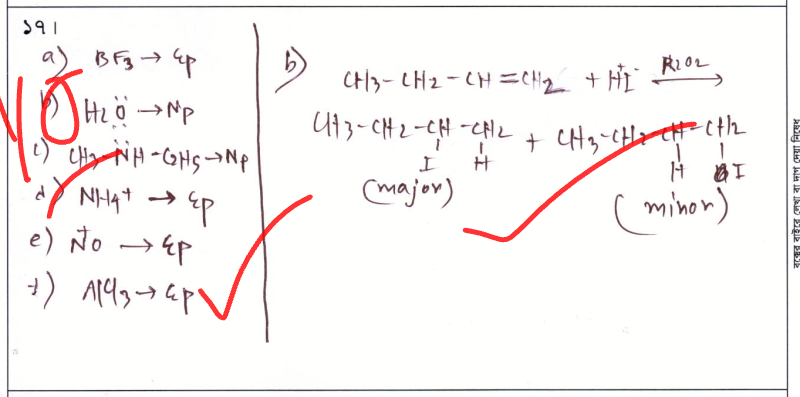 ১৭।
a) BF3 → Ep
b) H2Ö → Np
c) CH3-N̈H-C2H5 → Np
d) NH4+ → Ep
e) N⁺O → Ep
f) AlCl3 → Ep
b) CH3-CH2-CH=CH2 + H⁺I⁻ R2O2 →
CH3-CH2-CH-CH2 + CH3-CH2-CH-CH2
I H H I
(major) (minor)
বক্সের বাইরে লেখা বা দাগ দেয়া নিষেধ